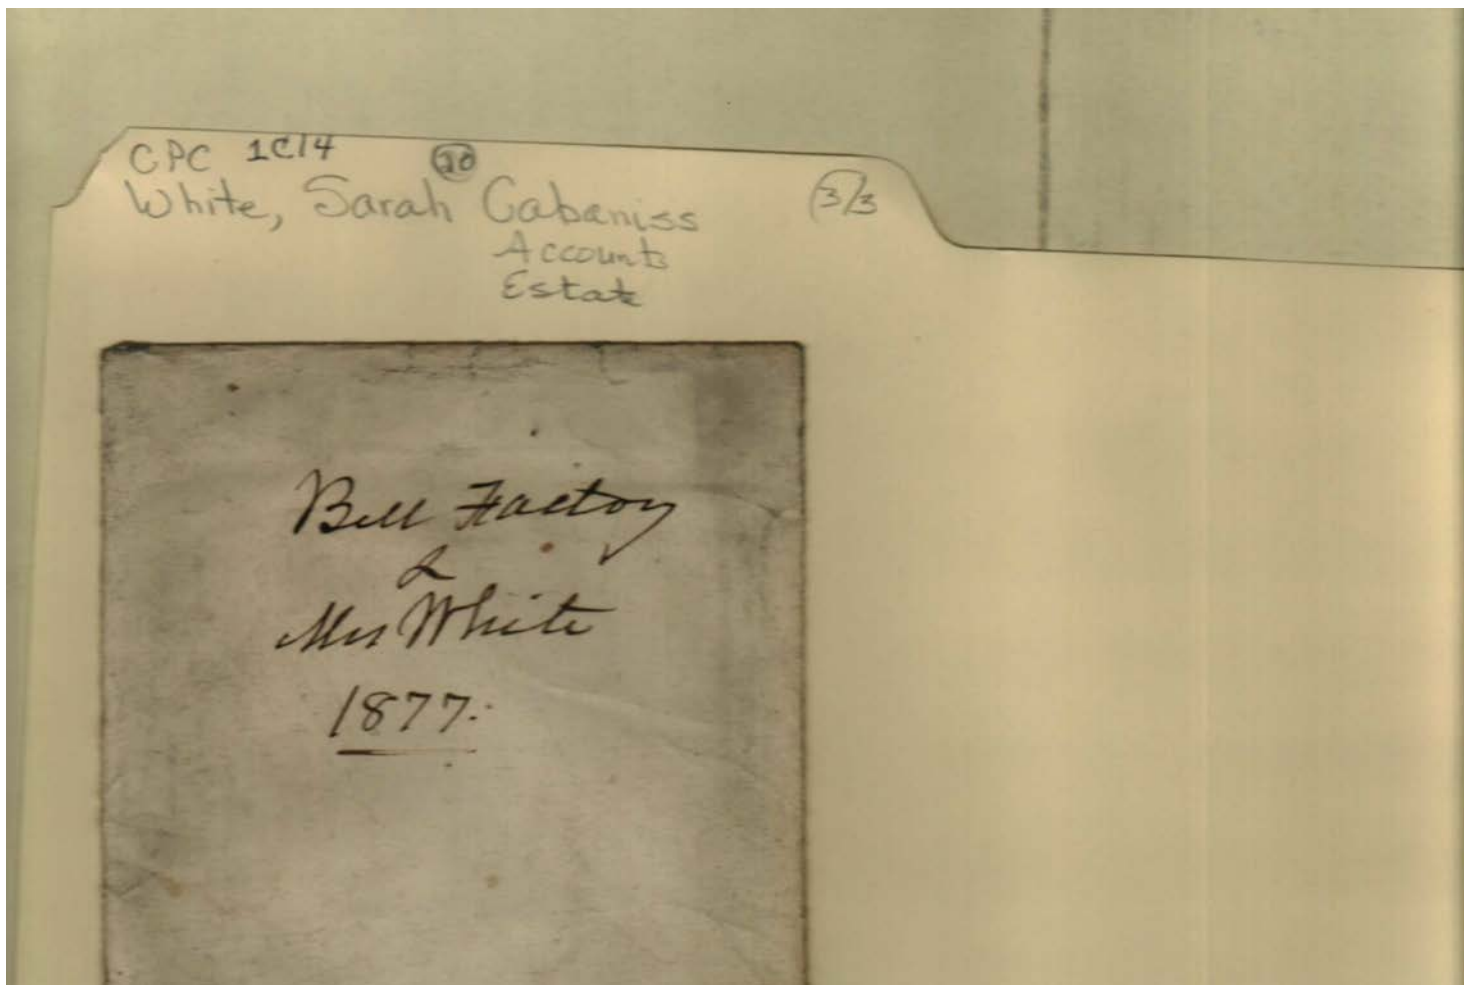 CPC 1C14 20
White, Sarah Cabaniss 3/3
Accounts
Estate
Bell Factory
&
Mrs White
1877.